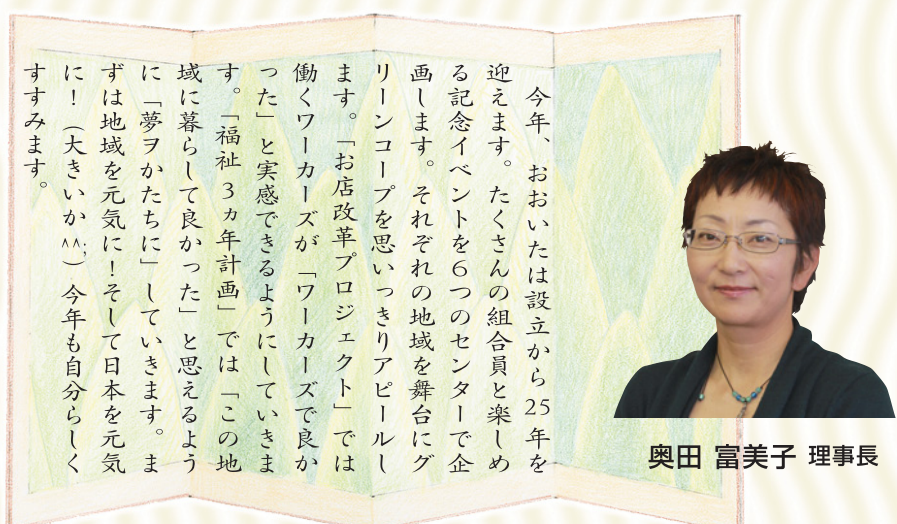 今年、おおいたは設立から25年を
迎えます。たくさんの組合員と楽しめ
る記念イベントを6つのセンターで企
画します。それぞれの地域を舞台にグ
リーンコープを思いっきりアピールし
ます。「お店改革プロジェクト」では
働くワーカーズが「ワーカーズで良か
った」と実感できるようにしていきま
す。「福祉3ヵ年計画」では「この地
域に暮らして良かった」と思えるよう
に「夢ヲかたちに」していきます。ま
ずは地域を元気に!そして日本を元気
に!(大きいか^^;)今年も自分らしく
すすみます。
奥田 富美子 理事長